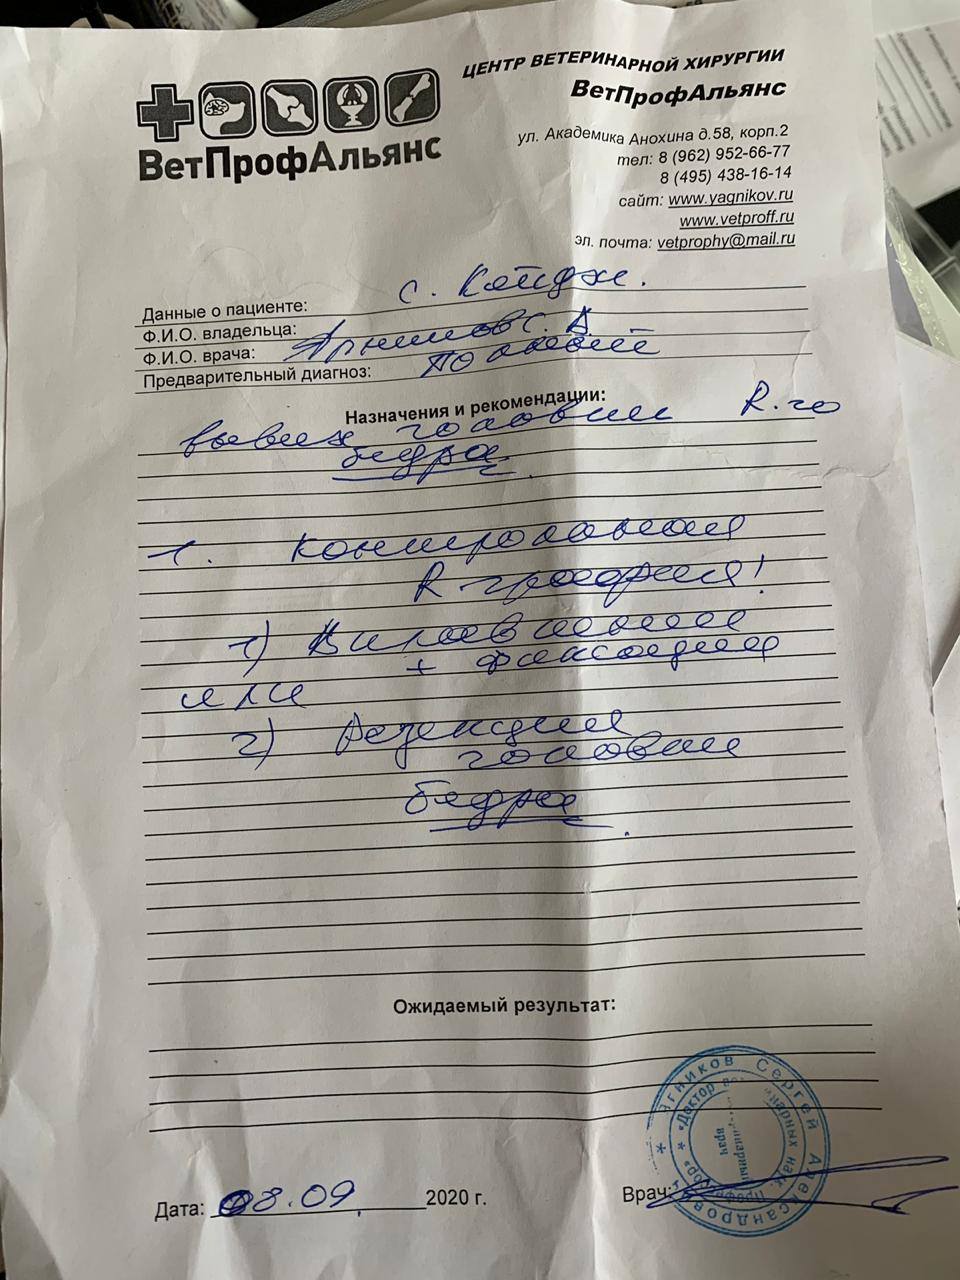 ЦЕНТР ВЕТЕРИНАРНОЙ ХИРУРГИИ
ВетПрофАльянс
ВетПрофАльянс
ул. Академика Анохина д.58, корп.2
тел: 8 (962) 952-66-77
8 (495) 438-16-14
сайт: www.yagnikov.ru
www.vetproff.ru
эл. почта: vetprophy@mail.ru
Данные о пациенте: с.
Ф.И.О. владельца:
Ф.И.О. врача:
Предварительный диагноз:
Назначения и рекомендации:
вывих головки R-го
бедра
1. контрольная
R-графия!
1) Вправление
+ фиксация
или
2) Резекция
головки
бедра
Ожидаемый результат:
Ягников Сергей Александрович
Дата: 08.09. 2020 г.
Врач: